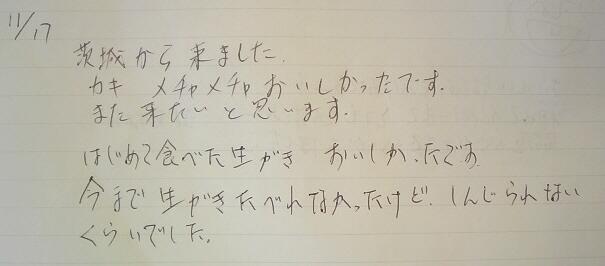 11/17
茨城から来ました.
カキ メチャメチャおいしかったです.
また来たいと思います.
はじめて食べた生がき おいしかったです
今まで生がきたべれなかったけど. しんじられない
くらいでした.